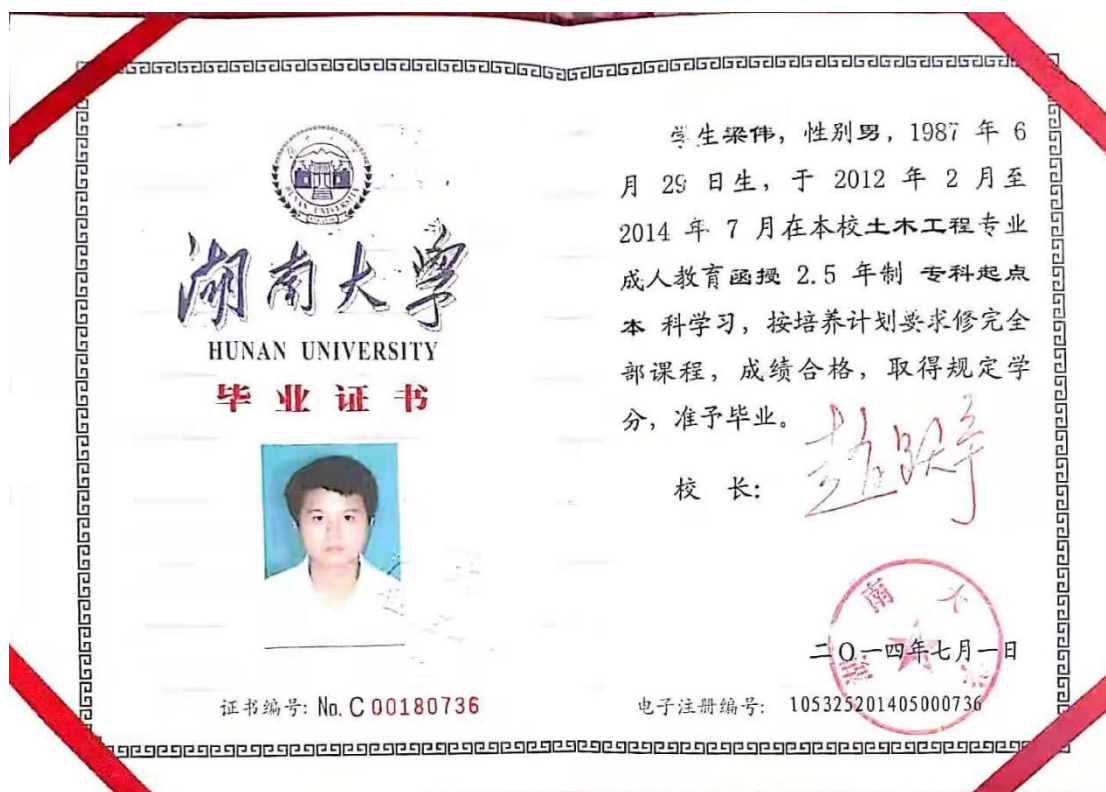 湖南大学
HUNAN UNIVERSITY
毕业证书
证书编号: No. C 00180736
学生梁伟，性别男，1987 年 6
月 29 日生，于 2012 年 2 月至
2014 年 7 月在本校土木工程专业
成人教育函授 2.5 年制 专科起点
本 科学习，按培养计划要求修完全
部课程，成绩合格，取得规定学
分，准予毕业。
校 长:
二〇一四年七月一日
电子注册编号: 105325201405000736